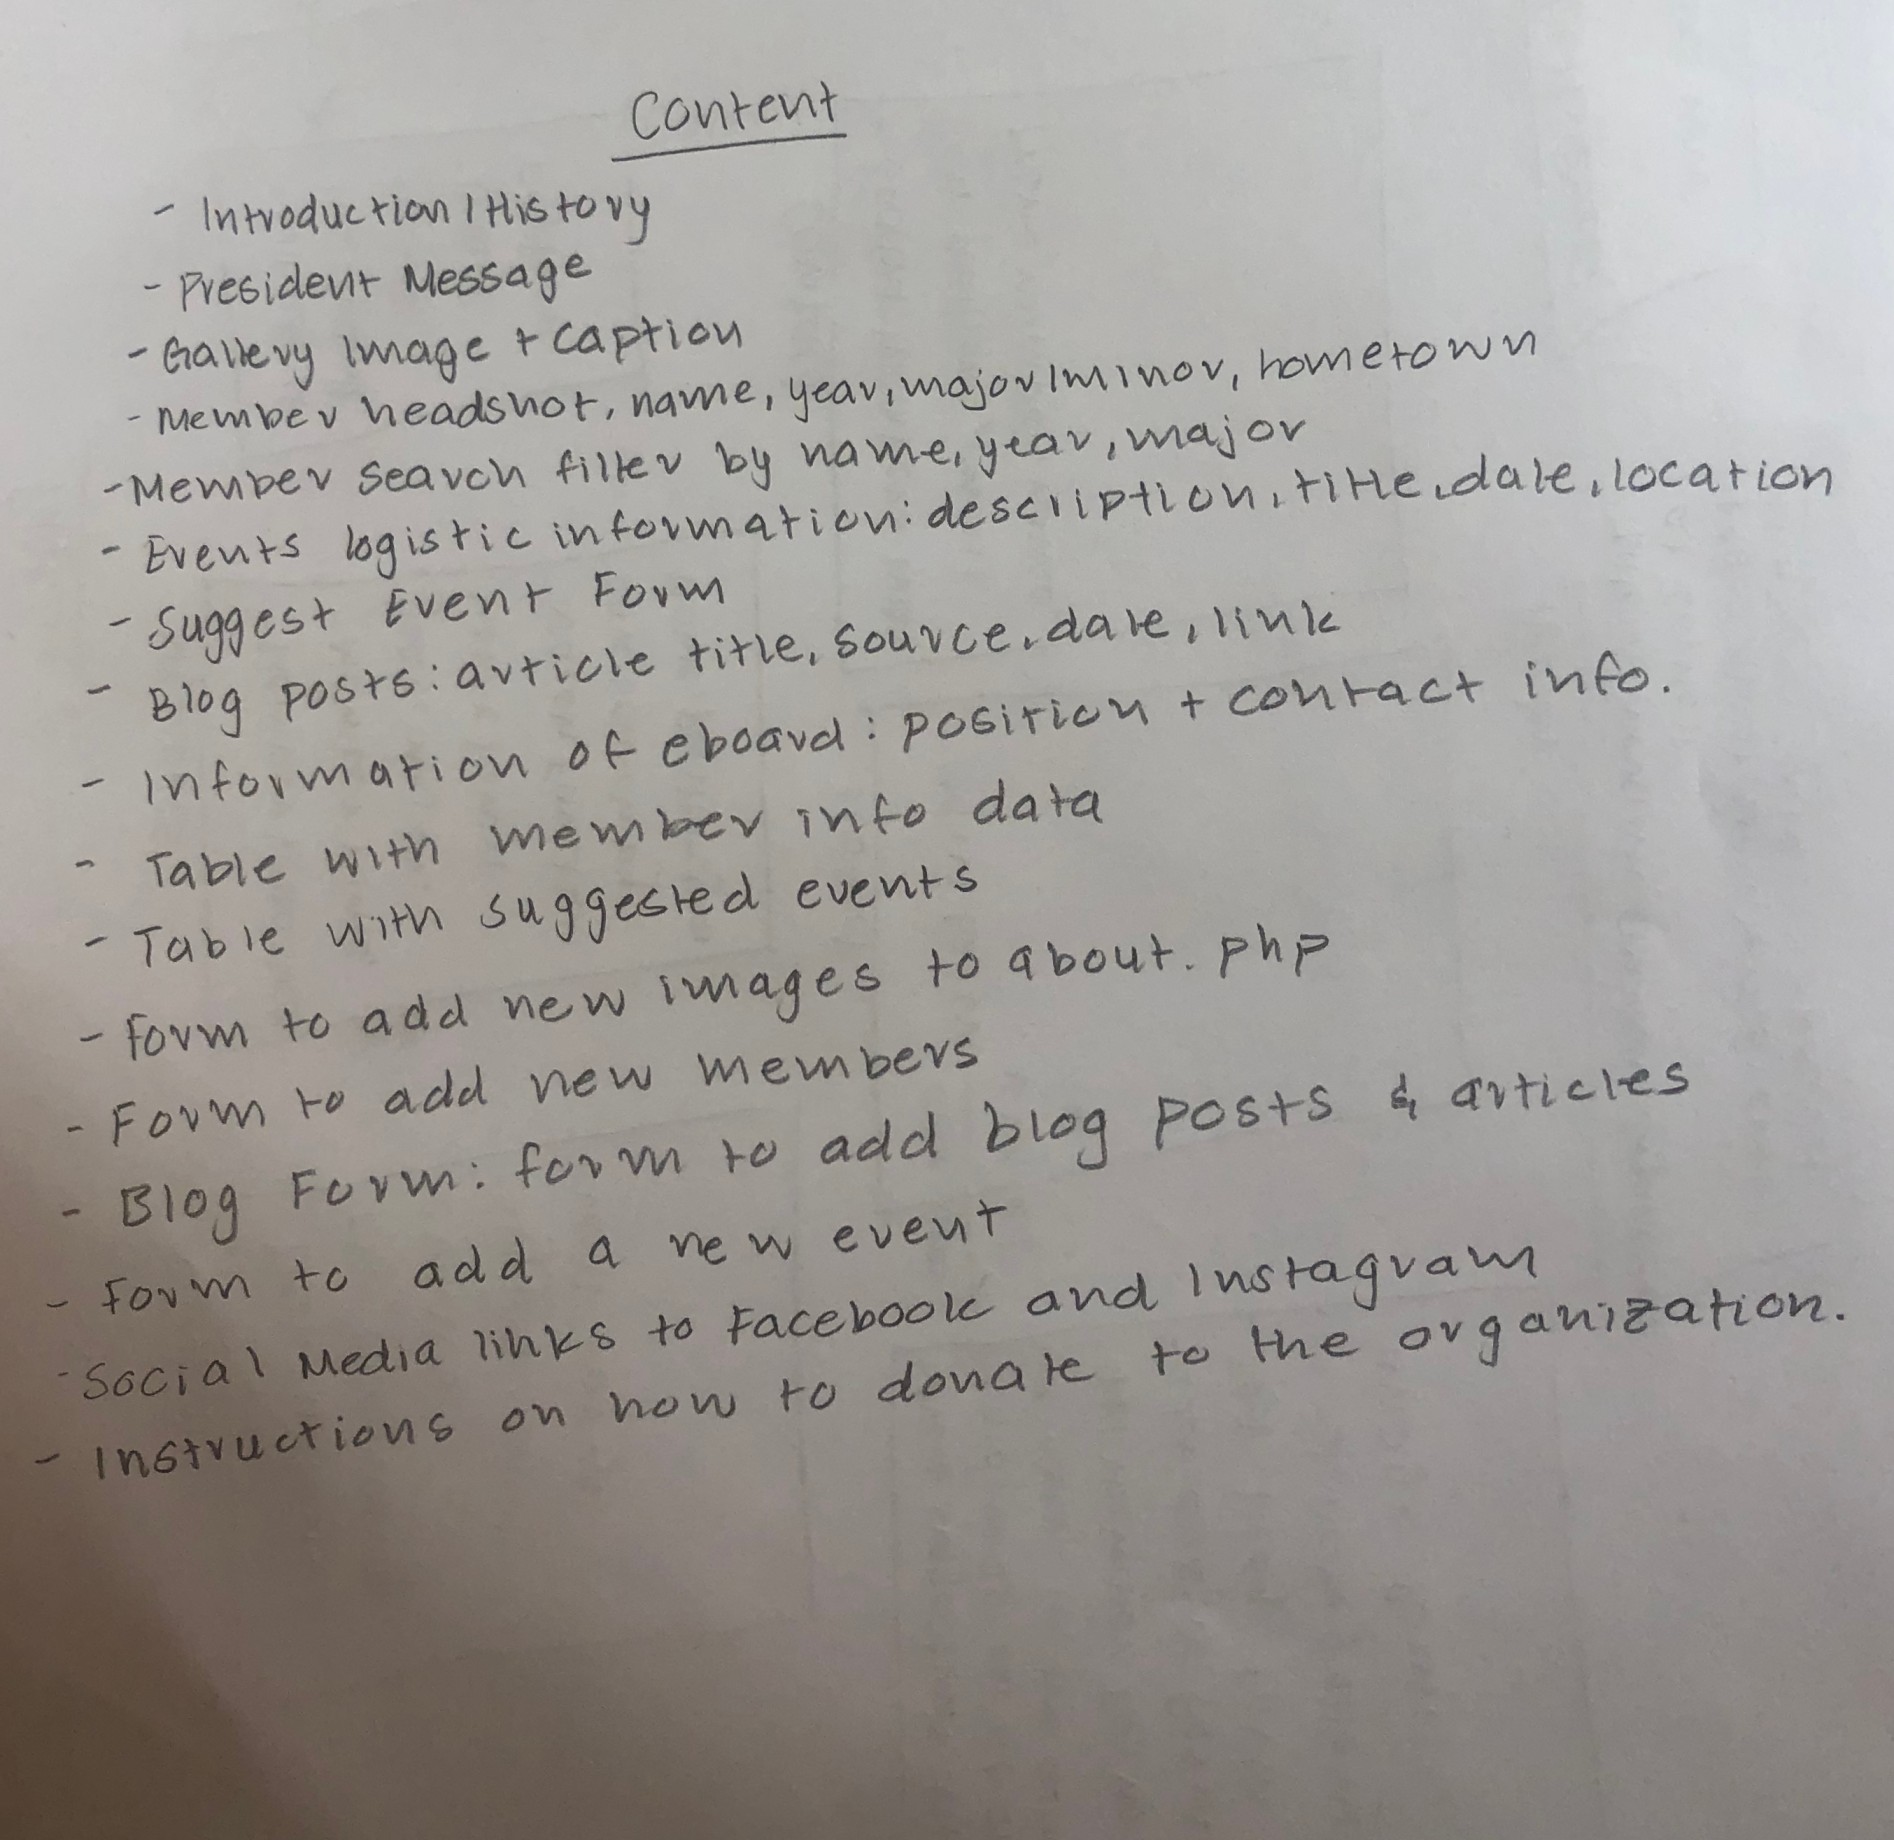 Content
- Introduction / History
- President Message
- Gallery Image + Caption
- Member headshot, name, year, major/minor, hometown
- Member search filter by name, year, major
- Events logistic information: description, title, date, location
- Suggest Event Form
- Blog posts: article title, source, date, link
- Information of eboard: position + contact info.
- Table with member info data
- Table with suggested events
- Form to add new images to about.php
- Form to add new members
- Blog Form: form to add blog posts & articles
- Form to add a new event
- Social Media links to Facebook and Instagram
- Instructions on how to donate to the organization.